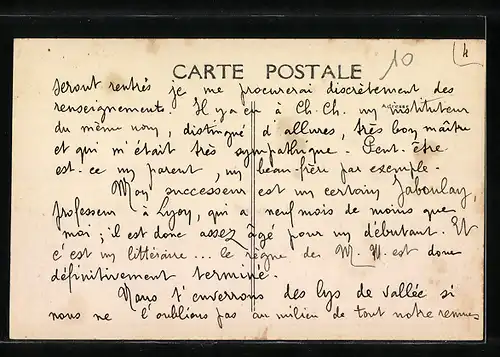 10
4
CARTE POSTALE
seront rentrés je me procurerai discrètement des
renseignements. Il y a eu à Ch. Ch. un instituteur
du même nom, distingué d'allures, très bon maître
et qui m'était très sympathique. Peut-être
est-ce un parent, un beau-frère par exemple.
Mon successeur est un certain Jaboulay,
professeur à Lyon, qui a neuf mois de moins que
moi; il est donc assez âgé pour un débutant. Et
c'est un littéraire... le règne des M. est donc
définitivement terminé.
Nous t'enverrons des lys de vallée si
nous ne l'oublions pas au milieu de tout notre remue